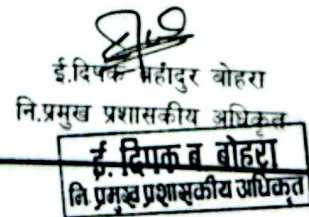 ई.दिपक बहादुर बोहरा
नि.प्रमुख प्रशासकीय अधिकृत
ई. दिपक ब. बोहरा
नि.प्रमुख प्रशासकीय अधिकृत